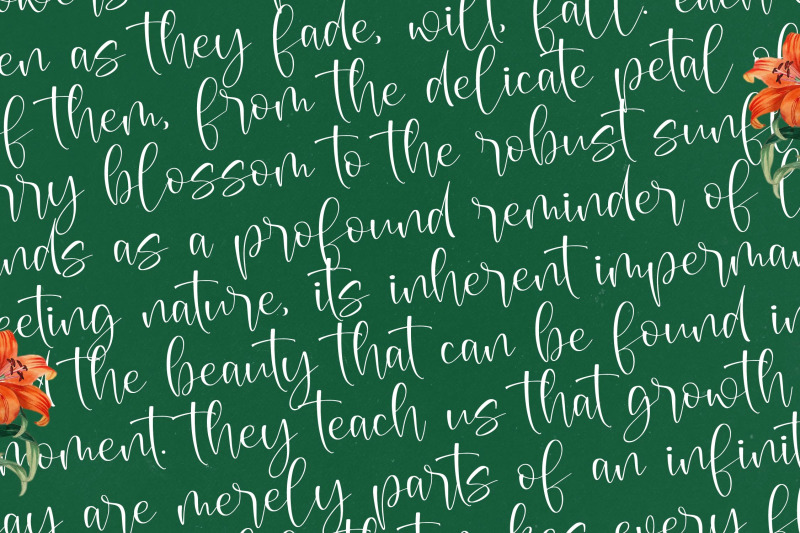 en as they fade, will, fall. each
f them, from the delicate petal of
rry blossom to the robust sunf
nds as a profound reminder of
eeting nature, its inherent imperman
the beauty that can be found in
moment. they teach us that growth
ay are merely parts of an infinit
every